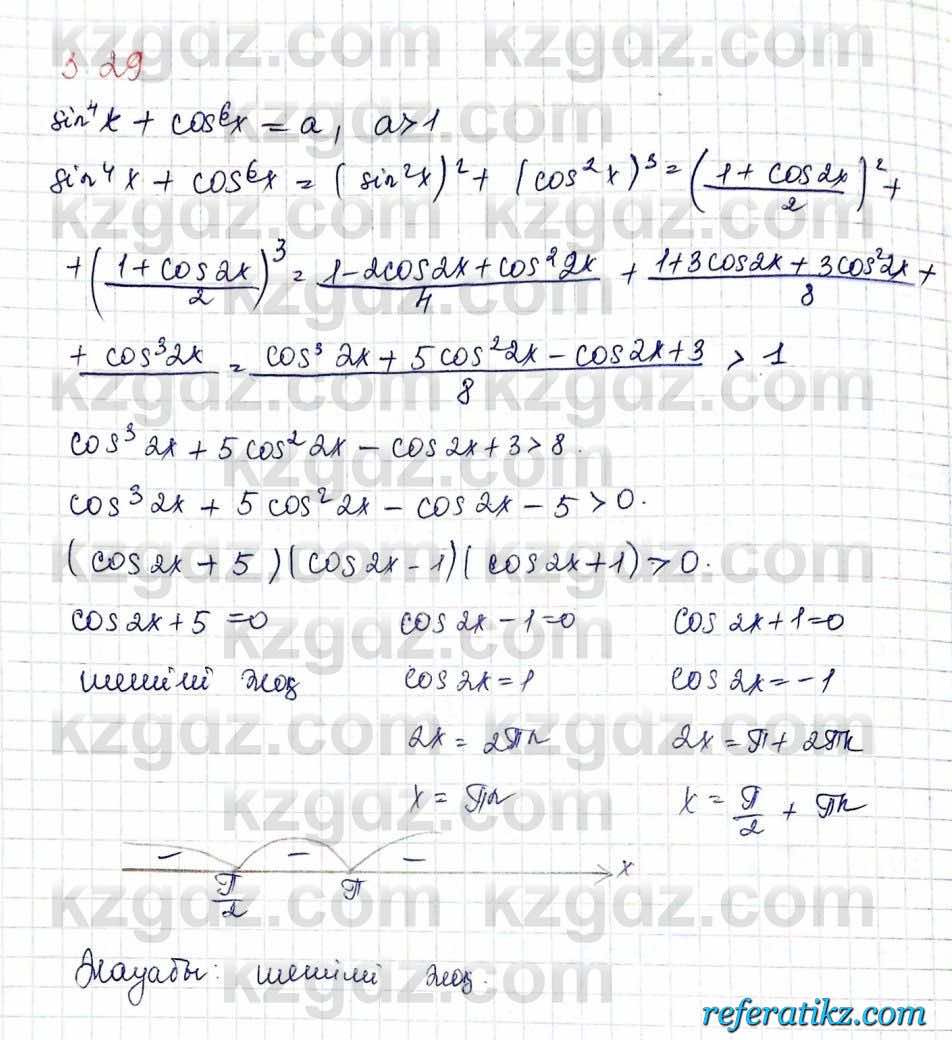 3.29
sin⁴x + cos⁶x = a, a>1
sin⁴x + cos⁶x = (sin²x)² + (cos²x)³ = ((1 + cos2x)/2)² +
+ ((1 + cos2x)/2)³ = (1-2cos2x + cos²2x)/4 + (1+3cos2x + 3cos²2x +)/8
+ cos³2x = (cos³2x + 5cos²2x - cos2x + 3)/8 > 1
cos³2x + 5cos²2x - cos2x + 3 > 8.
cos³2x + 5cos²2x - cos2x - 5 > 0.
(cos2x + 5)(cos2x - 1)(cos2x + 1) > 0.
cos2x + 5 = 0 cos2x - 1 = 0 cos2x + 1 = 0
шешімі жоқ cos2x = 1 cos2x = -1
2x = 2πn 2x = π + 2πn
x = πn x = π/2 + πn
− − −
π/2 π x
Жауабы: шешімі жоқ.
kzgdz.com
referatikz.com